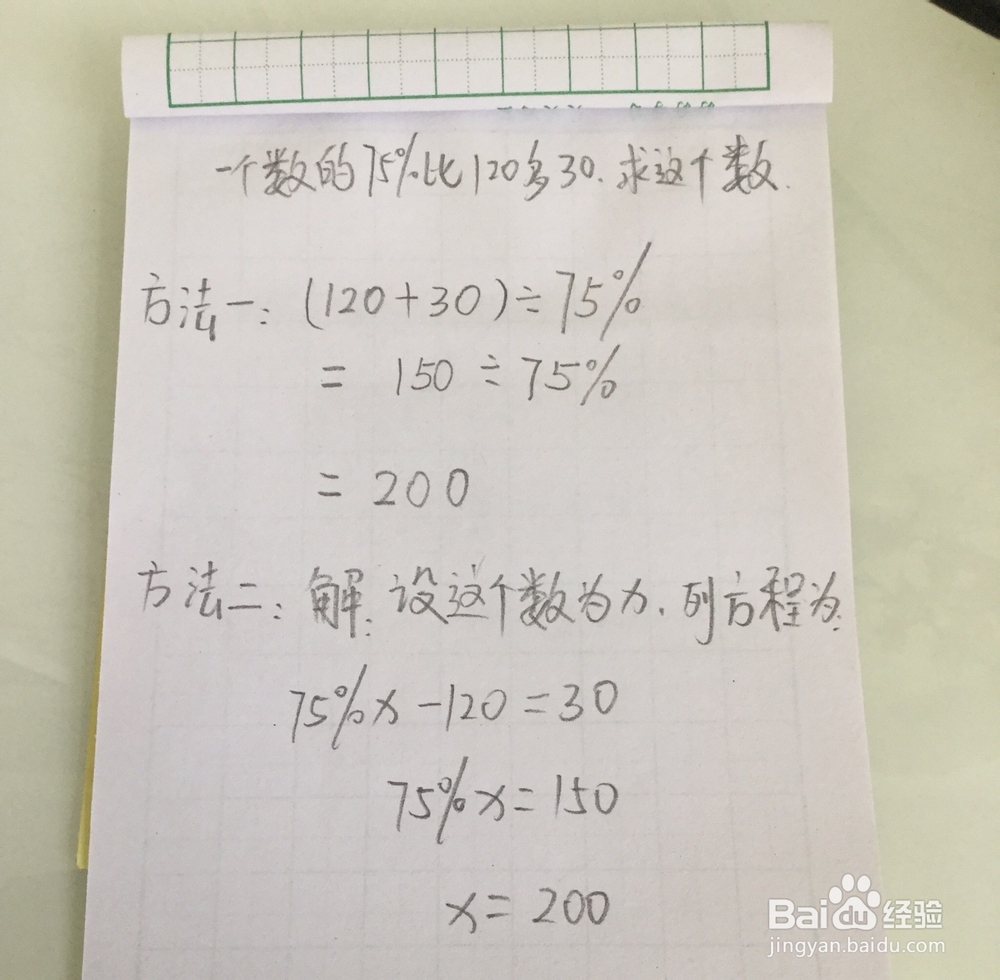 一个数的75%比120多30.求这个数.
方法一：(120+30)÷75%
= 150÷75%
= 200
方法二：解：设这个数为x.列方程为：
75%x-120=30
75%x=150
x=200
Baidu经验
jingyan.baidu.com